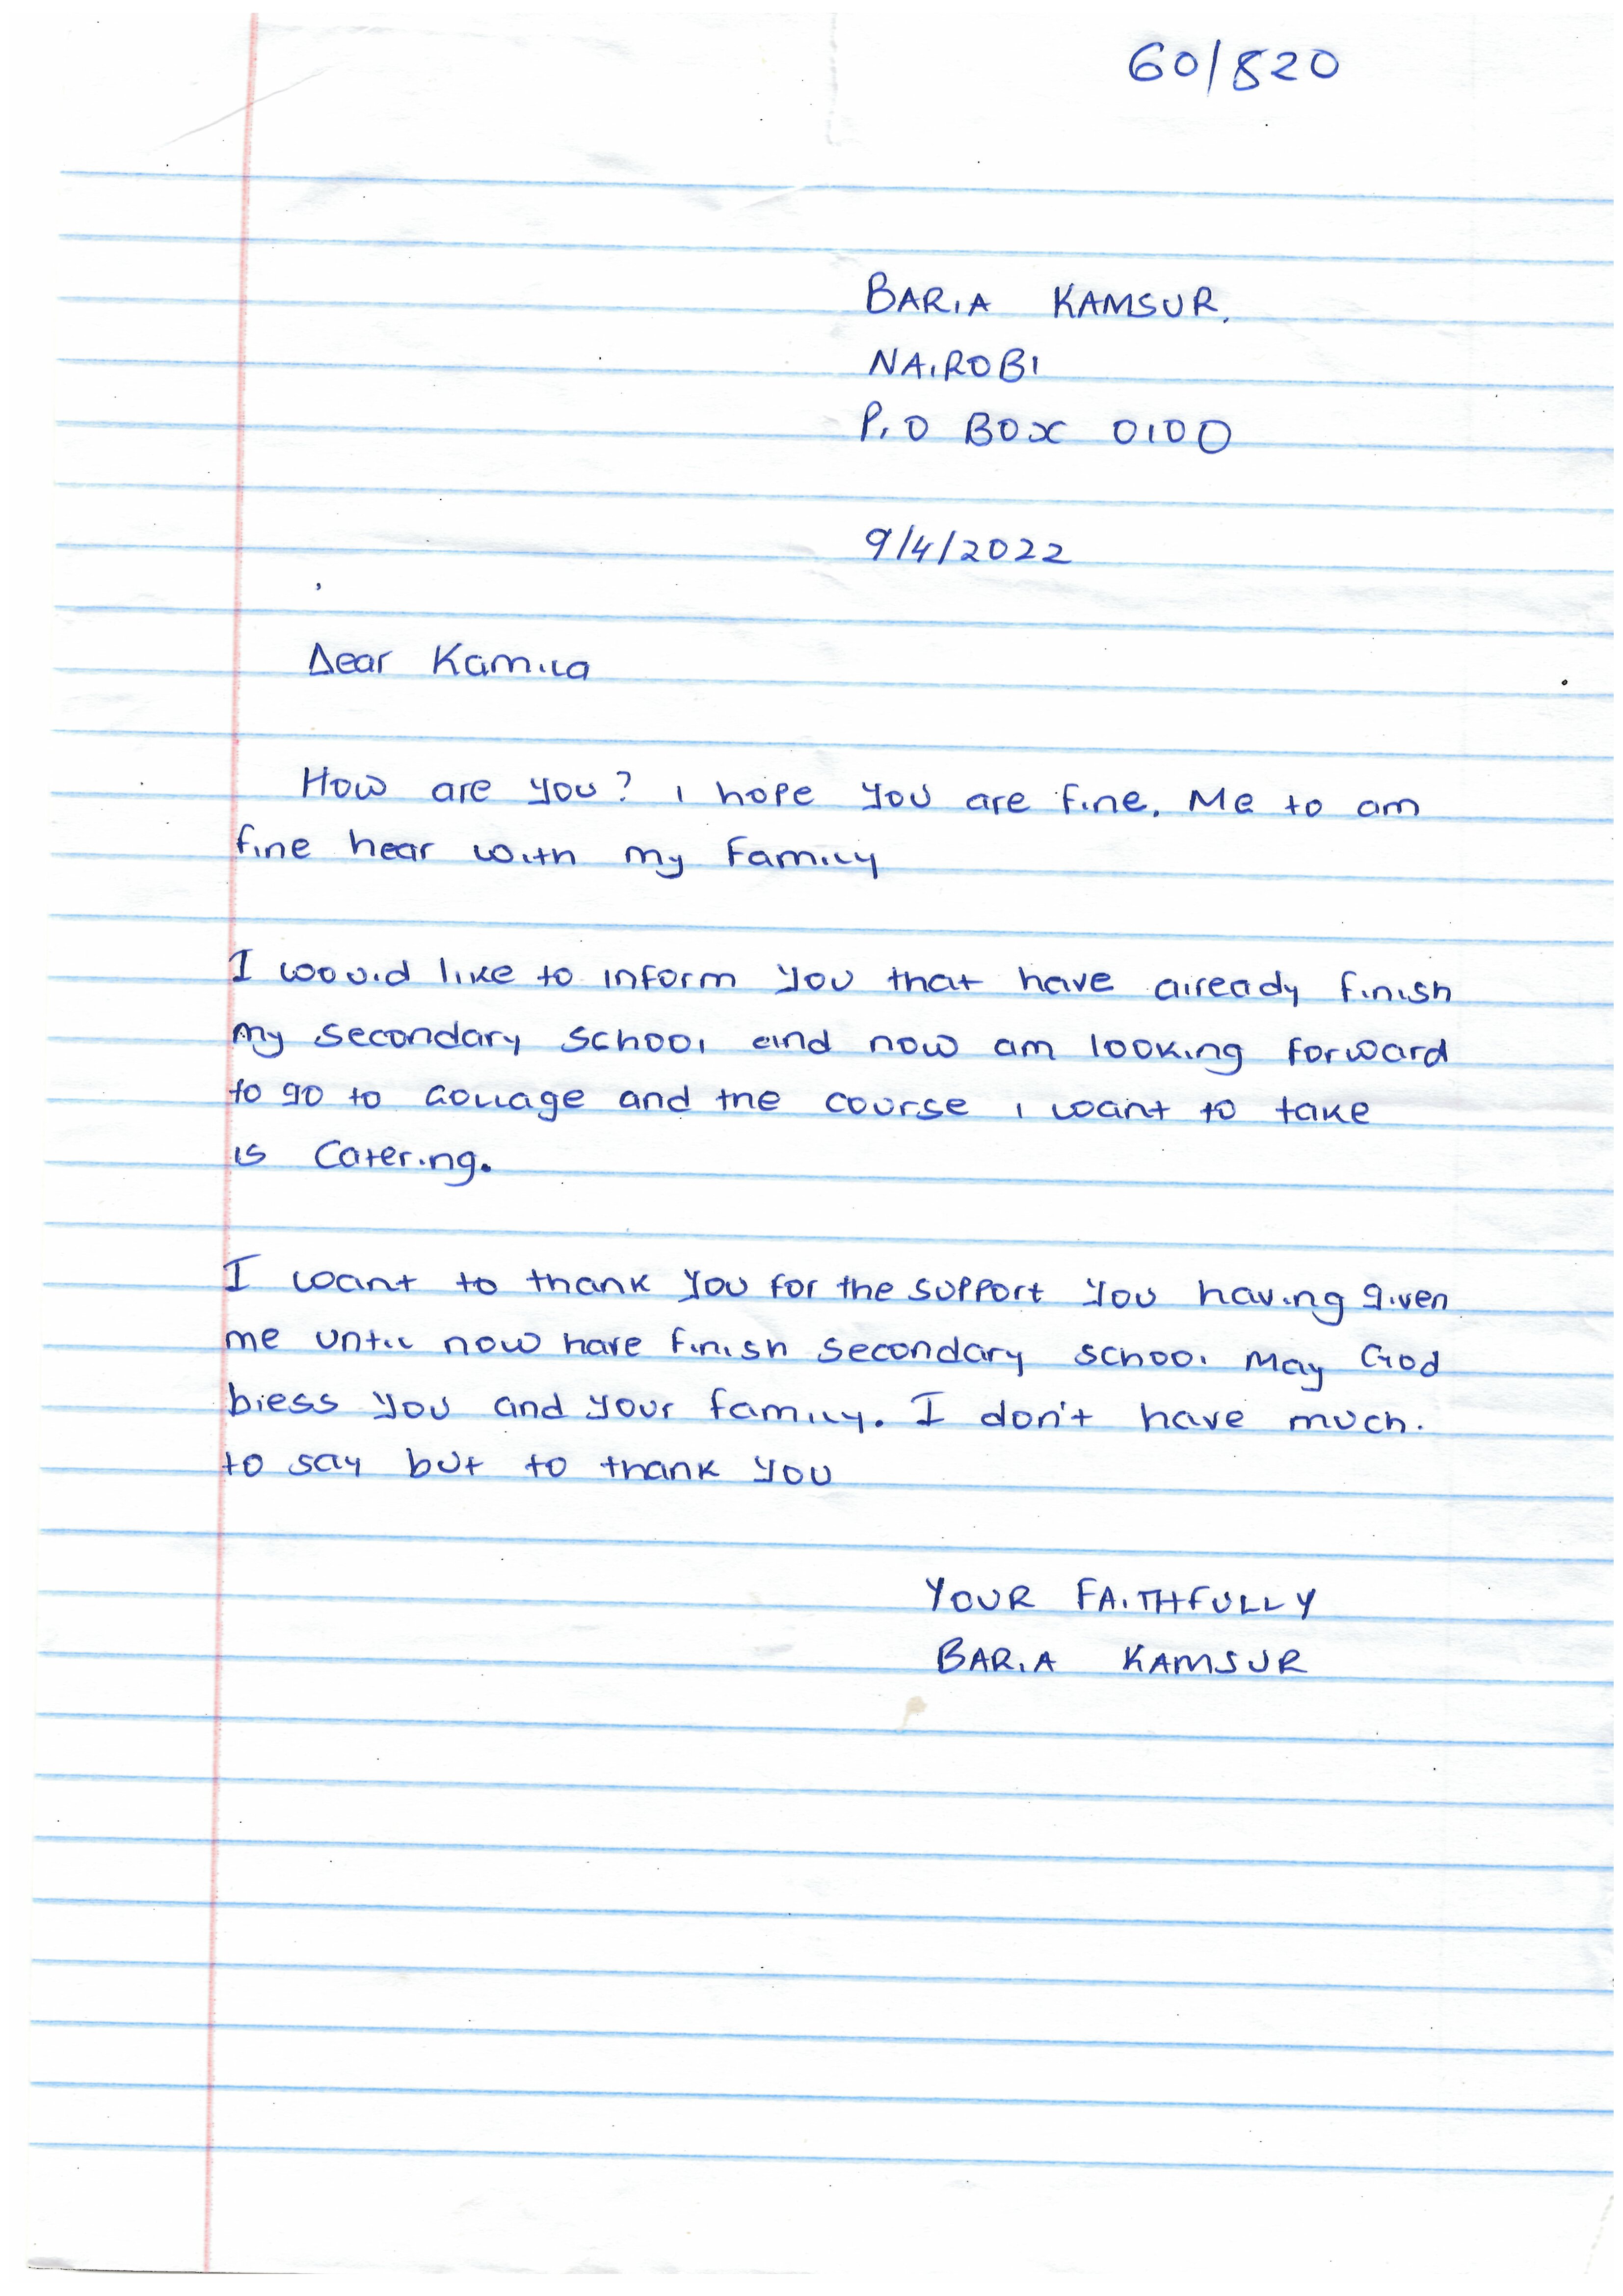 60/820
BARIA KAMSUR.
NAIROBI
P.O BOX 0100
9/4/2022
Dear Kamila
How are you? I hope you are fine. Me to am
fine hear with my family
I would like to inform you that have already finish
my secondary school and now am looking forward
to go to collage and the course I want to take
is Catering.
I want to thank you for the support you having given
me until now have finish secondary school May God
bless you and your family. I don't have much.
to say but to thank you
YOUR FAITHFULLY
BARIA KAMSUR